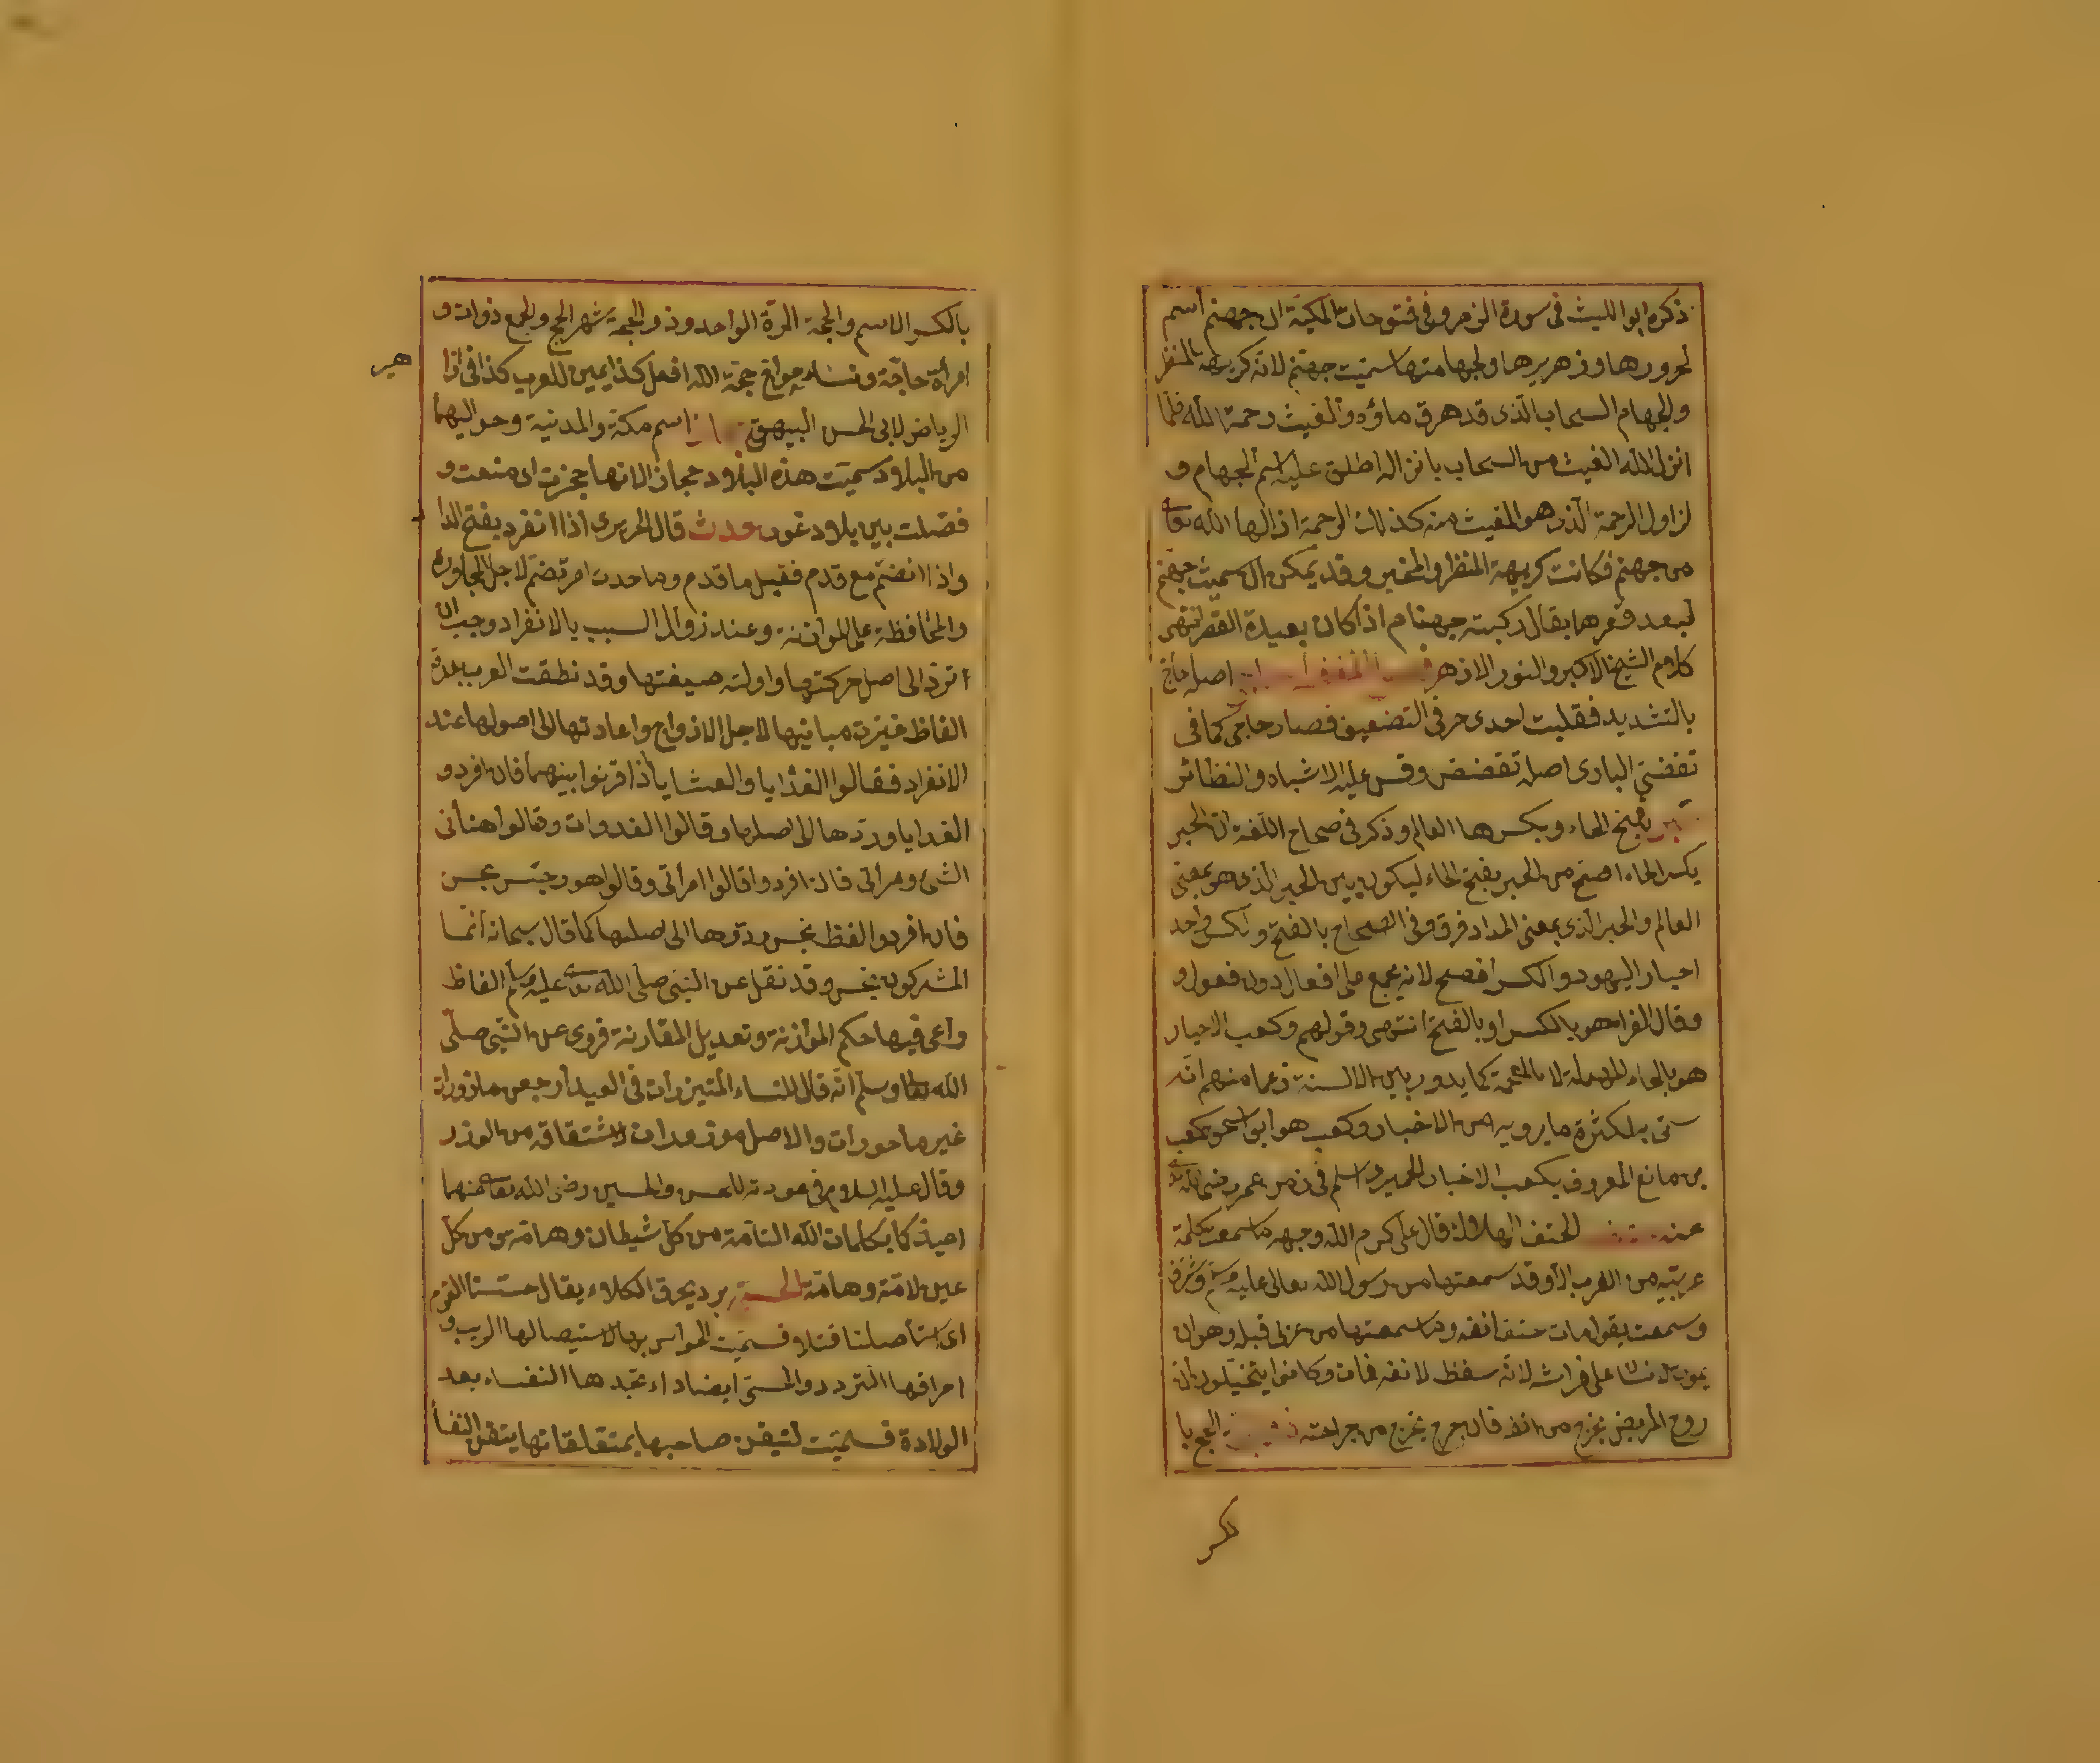 ذكره ابو الليث فى سورة الزمر وفى فتوحات المكية ان جهنم اسم
لحرورها وزمهريرها ولجهامتها سميت جهنم لانه كريهة المنظر
والجهام السحاب الذى قد هرق ماؤه والغيث رحمة الله فلما
انزل الله الغيث من السحاب بانزاله اطلق عليه اسم الجهام و
لزاول الرحمة الذى هو المغيث منه كذلك الرحمة ازالها الله تعا
من جهنم فكانت كريهة المنظر والمخبر وقد يمكن ان سميت جهنم
لبعد قعرها يقال ركبة جهنام اذا كان بعيدة القعر انتهى
كلام الشيخ الاكبر والنور الازهر اصله حاج
بالتشديد فقلبت احدى حرفى التضعيف فصار حاجى كما فى
تقضى البازى اصله تقضض وقس عليه الاشباه والنظائر
بفتح الحاء وبكسرها العالم وذكر فى صحاح اللغة ان الحبر
بكسر الحاء افصح من الحبر بفتح الحاء ليكون بين الحبر الذى هو بمعنى
العالم والحبر الذى بمعنى المداد فرق وفى الصحاح بالفتح والكسر واحد
احبار اليهود والكسر افصح لانه يجمع على افعال دون فعول و
وقال الفراء هو بالكسر او بالفتح انتهى وقولهم وكعب الاحبار
هو بالحاء المهملة لا بالمعجمة كما يدور بين الالسنة زعما منهم انه
سمى به لكثرة ما يرويه من الاخبار وكعب هو ابو اسحق كعب
بن مانع المعروف بكعب الاخبار الحميرى اسلم فى زمن عمر رضى الله تعا
عنه الحتف الهلاك قال على كرم الله وجهه ما سمعت كلمة
عربية من العرب الا وقد سمعتها من رسول الله تعالى عليه وسلم وشرف
وسمعت يقول مات حتف انفه وما سمعتها من عربى قبله وهو ان
يموت الانسان على فراشه لانه سقط لانفه فمات وكانوا يتخيلون ان
روح المريض يخرج من انفه فان جرح يخرج من جراحته الحج با
لكسر
بالكسر الاسم والحجة المرة الواحد وذو الحجة شهر الحج والجمع ذوات و
امرأة حاجة ونساء حواج حجة الله افعل كذا يمين للعرب كذا فى اذا
هير
الرياض لابى الحسن البيهقى اسم مكة والمدنية وحواليهما
من البلاد سميت هذه البلاد حجاز الانها حجزت اى منعت و
فصلت بين بلاد غور حدث قال الحريرى اذا انفرد بفتح الدا
واذا انضم مع قدم فقيل ما قدم وما حدث امر تضم لاجل المجاورة
والمحافظة على الموازنة وعند زوال السبب بالانفراد وجب ان
ترد الى اصل حركتها واولته صيغتها وقد نطقت العرب بعدة
الفاظ غيرت مبانيها لاجل الازواج واعادتها الى اصولها عند
الانفراد فقالوا الغدايا والعشايا اذا قرنوا بينهما فان افردو
الغدايا وردها الى اصلها وقالوا الغدوات وقالوا هنأنى
الشئ ومرأنى فان افردوا قالوا امرأنى وقالوا هو رجس نجس
فان افردوا لفظ نجس ردوها الى اصلها كما قال سبحانه انما
المشركون نجس وقد نقل عن النبى صلى الله تعا عليه وسلم الفاظ
راعى فيها حكم الموازنة وتعديل المقارنة فروى عن النبى صلى
الله وسلم انه قال للنساء المتبرزات فى العيد ارجعن مازورات
غير ماجورات والاصل موزورات لاشتقاقه من الوزر
وقال عليه السلام فى عوذته للحسن والحسين رضى الله تعا عنهما
اعيذكما بكلمات الله التامة من كل شيطان وهامة ومن كل
عين لامة وهامة الحسة برد يحرق الكلاء يقال حسنا القوم
اى استأصلنا قتلا وسميت الحواس بها لاستيصالها الريب و
احراقها التردد والحس ايضا داء تجدها النفساء بعد
الولادة فسميت لتيقن صاحبها بمتعلقاتها يتقل النفسا